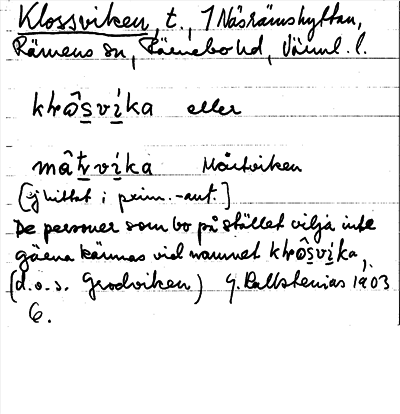 Klossviken, t., 1 Näsrämshyttan,
Rämens sn, Färnebo hd, Värml. l.
eller
Mårtviken
[ej hittat i prim.-ant.]
De personer som bo på stället vilja inte
gärna kännas vid namnet
(d.o.s. Grodviken) G. Kallstenius 1903
6.